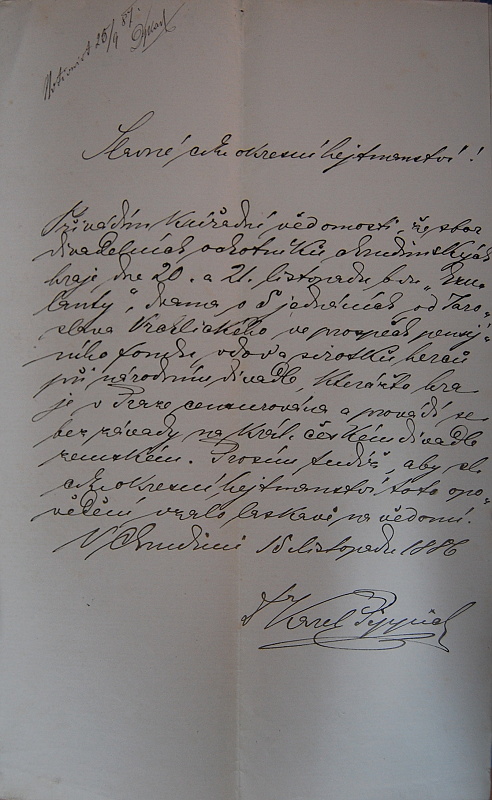 25/9 87.
Slavné c. k. okresní hejtmanství!
Přivádím k úřední vědomosti, že sbor
divadelních ochotníků chrudimských
hraje dne 20. a 21. listopadu b. r. „Exu-
lanty", drama o 5 jednáních od Jaro-
slava Vrchlického ve prospěch pensij-
ního fondu vdov a sirotků herců
při národním divadle, kterážto hra
je v Praze censurována a provádí se
bez závady na král. českém divadle
zemském. Prosím tudíž, aby sl.
c. k. okresní hejtmanství toto opo-
vědění vzalo laskavě na vědomí.
V Chrudimi 15 listopadu 1886
Dr Karel Pippich